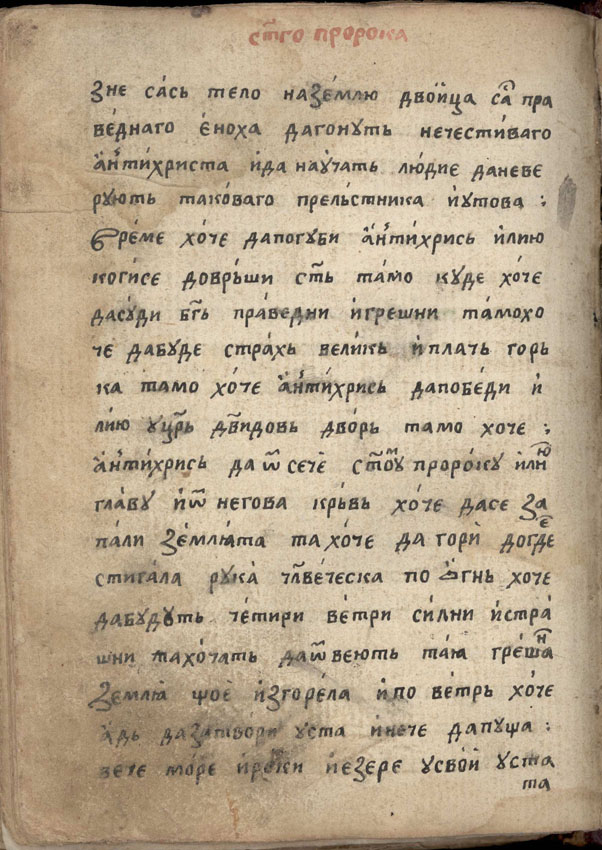 ст҃го пророка
зне са́сь тело назе́млю двои́ца с҃а пра
ве́днаго е́ноха дагонуть нечести́ваго
а҆нти́христа и҆да нау́чать лю́дие даневе
ру́ють тако́ваго преле́стника и҆утова :
вре́ме хо́че дапогуби а҆нти́хрись и҆лию
когисе довръши ст҃ъ та́мо куде хо́че
дасу́ди бг҃ь пра́ведни и҆грешни та́мохо
че дабуде стра́хь вели́кь и҆плать горь
ка тамо хо́че а҆нти́хрись дапобе́ди и҆
лі́ю уцр҃ь дв҃идовь дворь тамо хоче :
а҆нти́хрись даѿсечѐ ст҃о́му проро́ку и҆лию̀
гла́ву и҆ѿ негова кръвь хо́че дасе за
па́ли земля́та та хо́че да горѝ догде
стига́ла рука̀ чл҃ве́ческа по о́гнь хоче
дабу́дуть че́тири ве́три си́лни и҆стра́
шни тахо́чать даѿвеють та́я гре́шна
земля̀ що̀е и҆згоре́ла и҆по ве́трь хо́че
а́дь да затвори уста и҆нече дапуща :
вече мо́ре и҆реки и҆е́зере усвои̇̀ уста
та